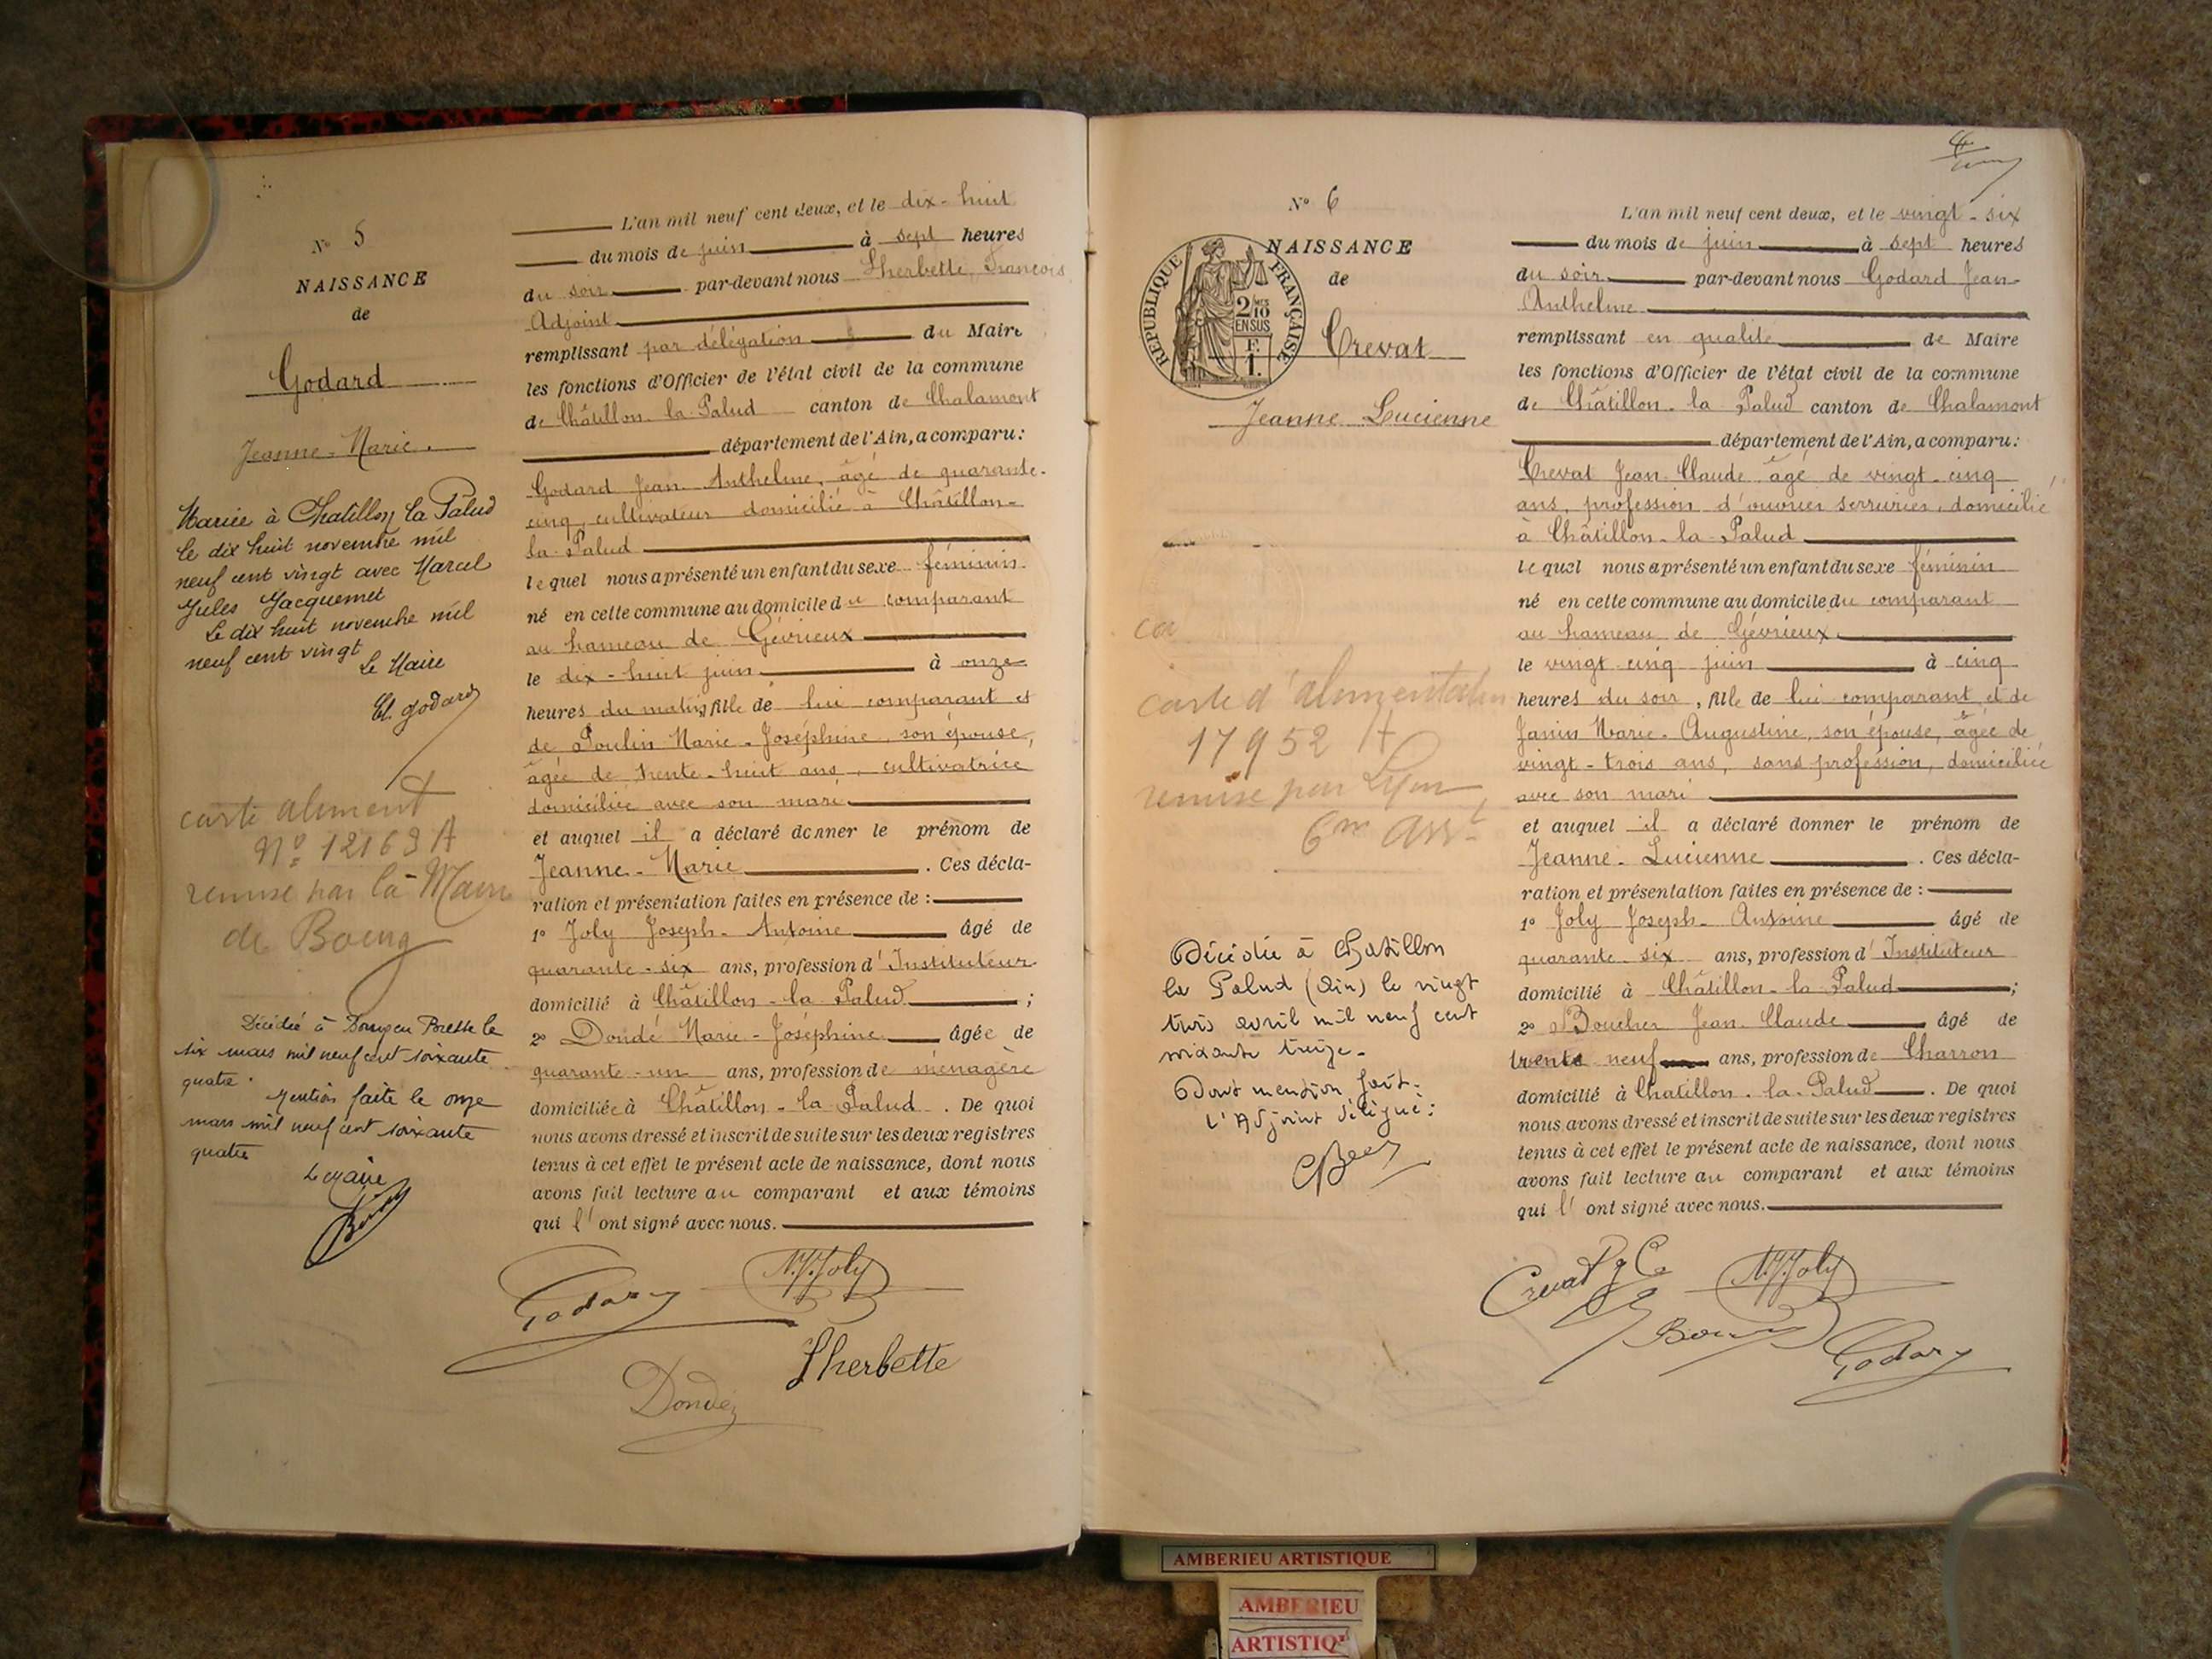 N° 5
NAISSANCE
de
Godard
Jeanne-Marie.
Mariée à Chatillon la Palud
le dix huit novembre mil
neuf cent vingt avec Marcel
Jules Jacquemet
Le dix huit novembre mil
neuf cent vingt
Le Maire
Godard
carte aliment
N° 12163 A
remise par la Mairie
de Bourg
Décédée à Bourg en Bresse le
six mars mil neuf cent soixante
quatre.
Mention faite le onze
mars mil neuf cent soixante
quatre
Le Maire
L'an mil neuf cent deux, et le dix-huit
du mois de juin à sept heures
du soir par-devant nous Lherbette, François
Adjoint
remplissant par délégation du Maire
les fonctions d'Officier de l'état civil de la commune
de Châtillon-la-Palud canton de Chalamont
département de l'Ain, a comparu:
Godard Jean Anthelme, âgé de quarante-
cinq, cultivateur domicilié à Châtillon-
la-Palud
lequel nous a présenté un enfant du sexe féminin
né en cette commune au domicile du comparant
au hameau de Gévrieux
le dix-huit juin à onze
heures du matin, fille de lui comparant et
de Poulin Marie-Joséphine, son épouse,
âgée de trente-huit ans, cultivatrice
domiciliée avec son mari
et auquel il a déclaré donner le prénom de
Jeanne-Marie. Ces décla-
ration et présentation faites en présence de :
1° Joly Joseph-Antoine âgé de
quarante-six ans, profession d'Instituteur
domicilié à Châtillon-la-Palud ;
2° Dondé Marie-Joséphine âgée de
quarante-un ans, profession de ménagère
domiciliée à Châtillon-la-Palud. De quoi
nous avons dressé et inscrit de suite sur les deux registres
tenus à cet effet le présent acte de naissance, dont nous
avons fait lecture au comparant et aux témoins
qui l'ont signé avec nous.
Godard
Joly
Lherbette
Dondez
4
N° 6
NAISSANCE
de
RÉPUBLIQUE FRANÇAISE
2/10
EN SUS
F.
1.
Crevat
Jeanne Lucienne
car
carte d'alimentation
17952 A
remise par Lyon
6me Arrt
Décédée à Chatillon
la Palud (Ain) le vingt
trois avril mil neuf cent
soixante treize.
Dont mention fait.
L'Adjoint délégué:
L'an mil neuf cent deux, et le vingt-six
du mois de juin à sept heures
du soir par-devant nous Godard Jean-
Anthelme
remplissant en qualité de Maire
les fonctions d'Officier de l'état civil de la commune
de Châtillon-la-Palud canton de Chalamont
département de l'Ain, a comparu:
Crevat Jean Claude âgé de vingt-cinq
ans, profession d'ouvrier serrurier, domicilié
à Châtillon-la-Palud
lequel nous a présenté un enfant du sexe féminin
né en cette commune au domicile du comparant
au hameau de Gévrieux
le vingt cinq juin à cinq
heures du soir, fille de lui comparant et de
Janin Marie-Augustine, son épouse, âgée de
vingt-trois ans, sans profession, domiciliée
avec son mari
et auquel il a déclaré donner le prénom de
Jeanne-Lucienne. Ces décla-
ration et présentation faites en présence de :
1° Joly Joseph-Antoine âgé de
quarante-six ans, profession d'Instituteur
domicilié à Châtillon-la-Palud ;
2° Boucher Jean-Claude âgé de
trente neuf ans, profession de Charron
domicilié à Chatillon-la-Palud. De quoi
nous avons dressé et inscrit de suite sur les deux registres
tenus à cet effet le présent acte de naissance, dont nous
avons fait lecture au comparant et aux témoins
qui l'ont signé avec nous.
Crevat
Joly
Godard
AMBERIEU ARTISTIQUE
AMBERIEU
ARTISTIQ